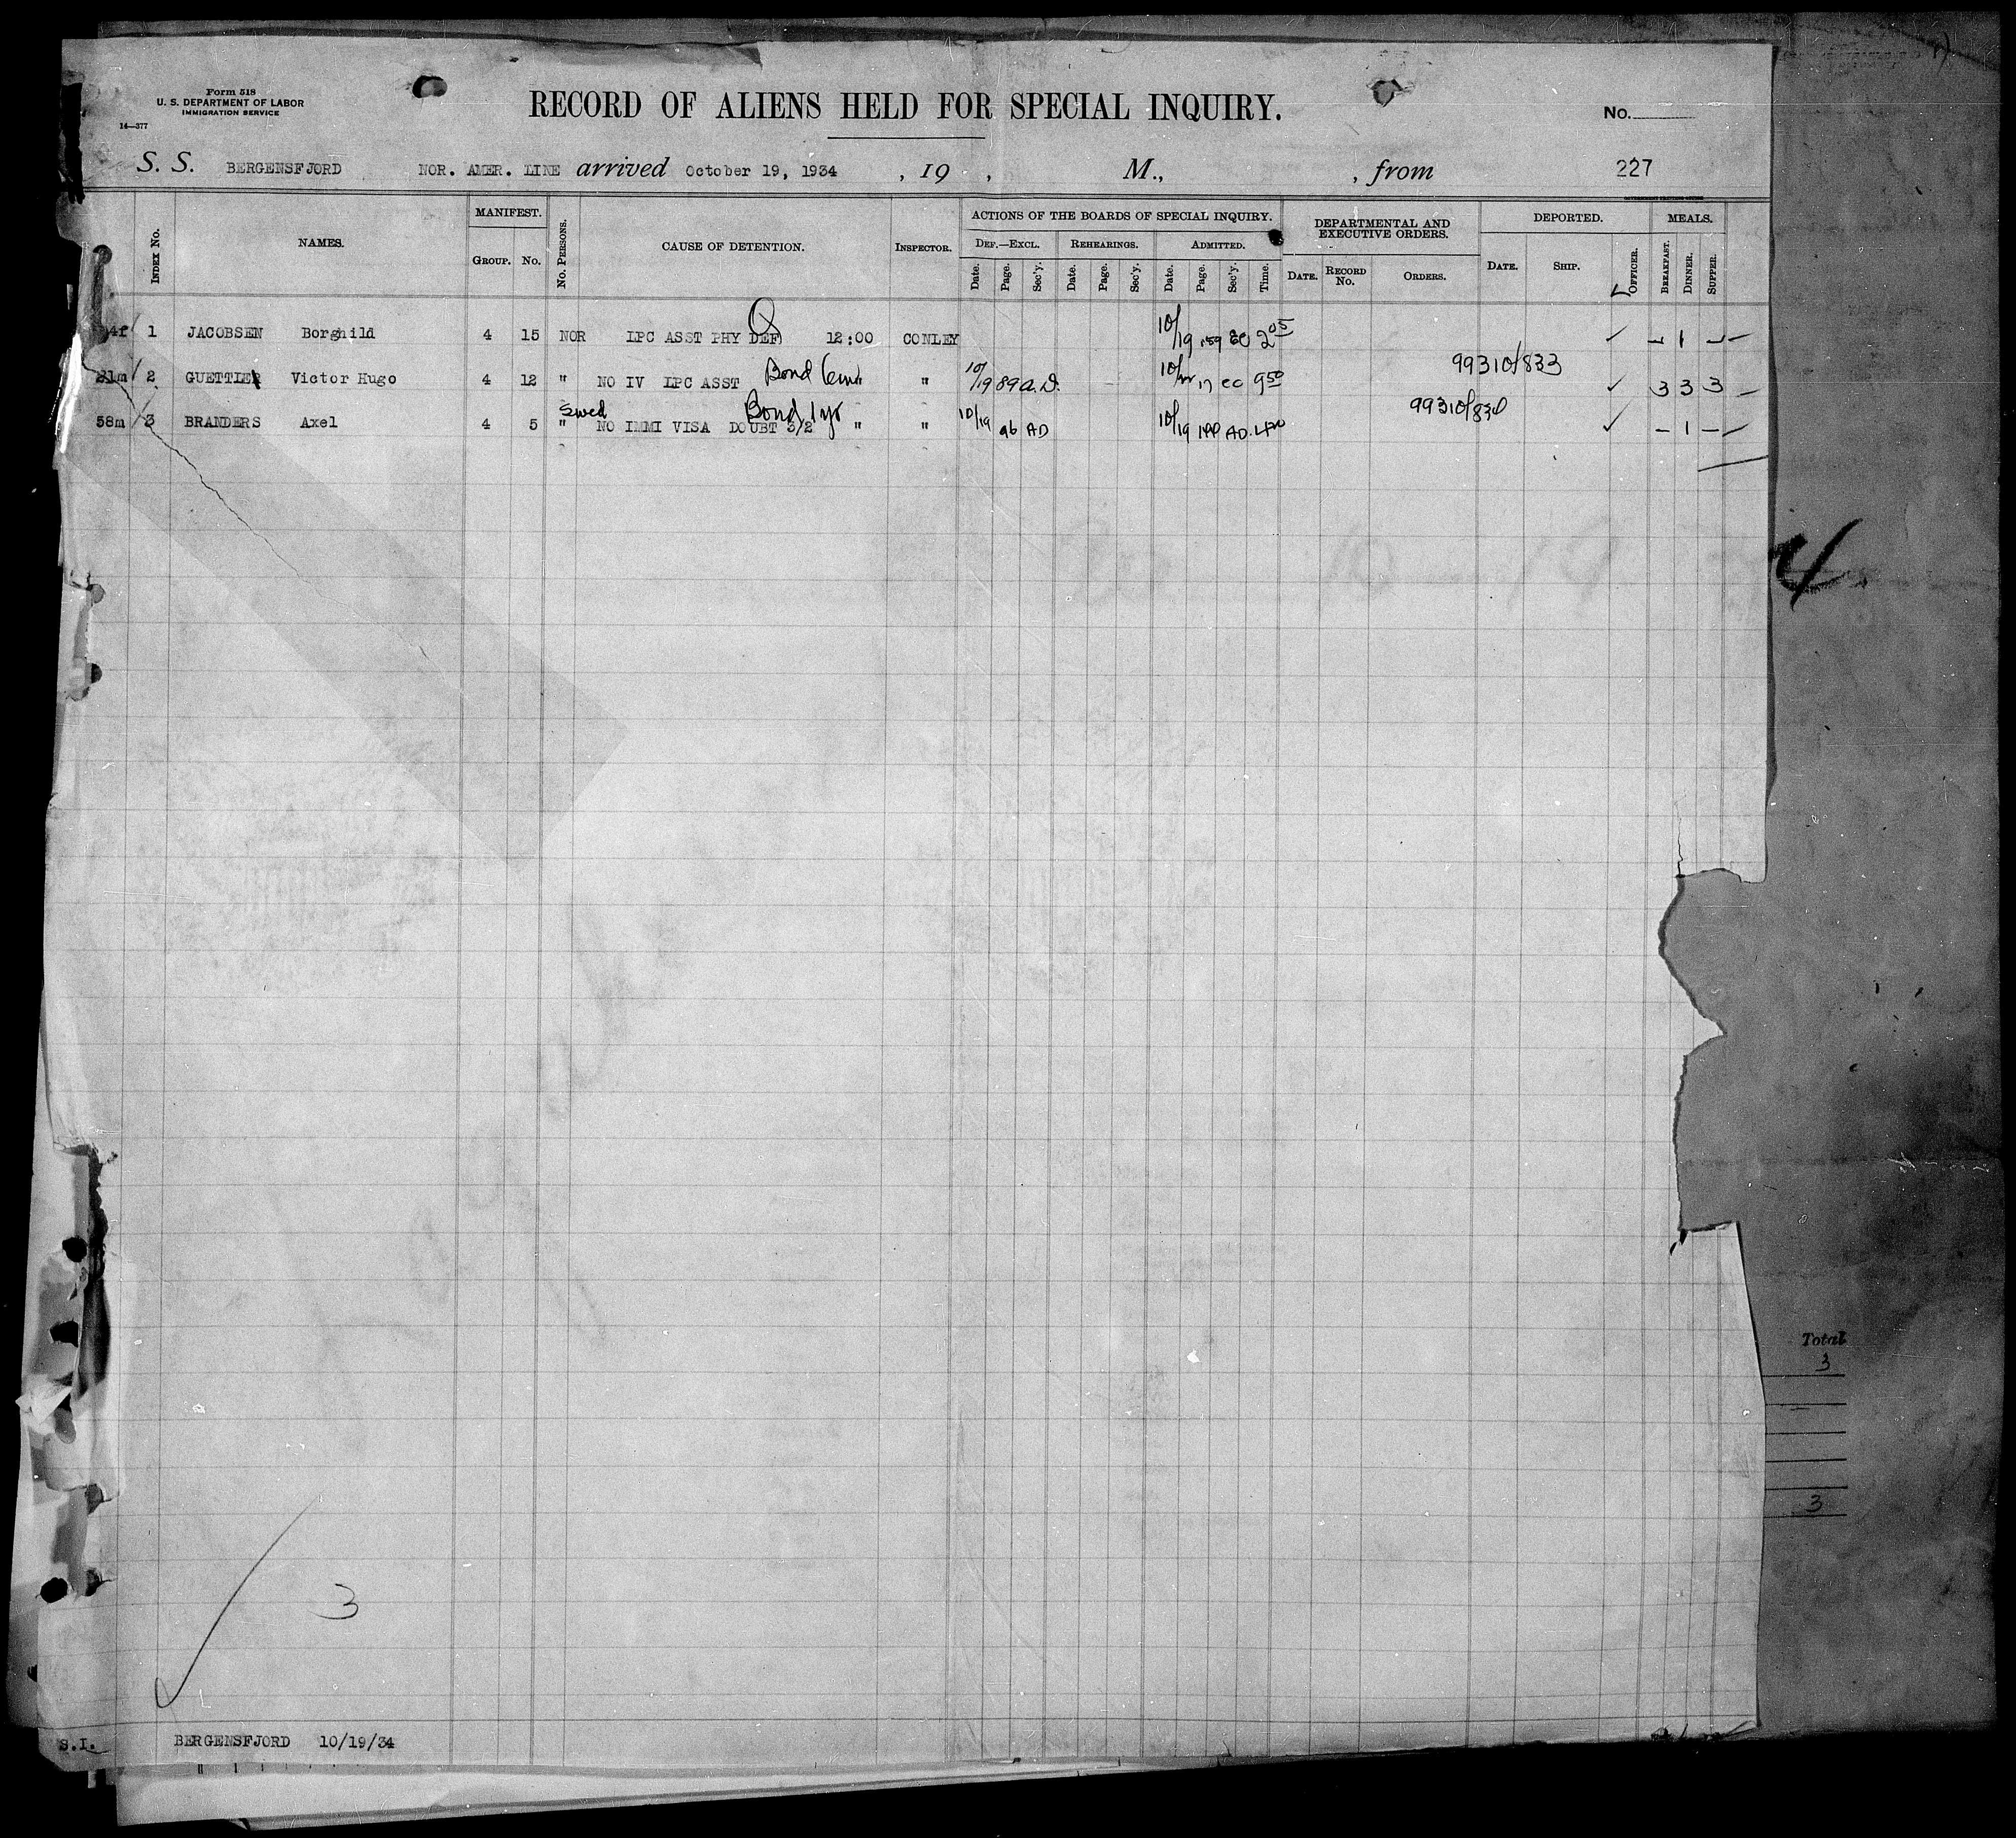 Form 518
U. S. DEPARTMENT OF LABOR
IMMIGRATION SERVICE
14—377
RECORD OF ALIENS HELD FOR SPECIAL INQUIRY.
No.
S. S. BERGENSFJORD NOR. AMER. LINE arrived October 19, 1934 , 19 , M., , from 227
GOVERNMENT PRINTING OFFICE
INDEX No. NAMES. MANIFEST. GROUP. No. No. PERSONS. CAUSE OF DETENTION. INSPECTOR. ACTIONS OF THE BOARDS OF SPECIAL INQUIRY. DEPARTMENTAL AND EXECUTIVE ORDERS. DEPORTED. MEALS.
DEF.—EXCL. REHEARINGS. ADMITTED.
Date. Page. Sec'y. Date. Page. Sec'y. Date. Page. Sec'y. Time. DATE. RECORD No. ORDERS. DATE. SHIP. OFFICER. BREAKFAST. DINNER. SUPPER.
4f 1 JACOBSEN Borghild 4 15 NOR LPC ASST PHY DEF 12:00 CONLEY 10/19 159 2 05 ✓ – 1 – –
21m 2 GUETTLER Victor Hugo 4 12 " NO IV LPC ASST Bond 6m " " 10/19 89 A.D. 10/ 17 EC 9 50 99310/833 ✓ 3 3 3 –
58m 3 BRANDERS Axel 4 5 Swed " NO IMMI VISA DOUBT 3/2 Bond 1 yr " " 10/19 96 AD 10/19 AD. 99310/830 ✓ – 1 – –
4
Total
3
3
3
S.I. BERGENSFJORD 10/19/34